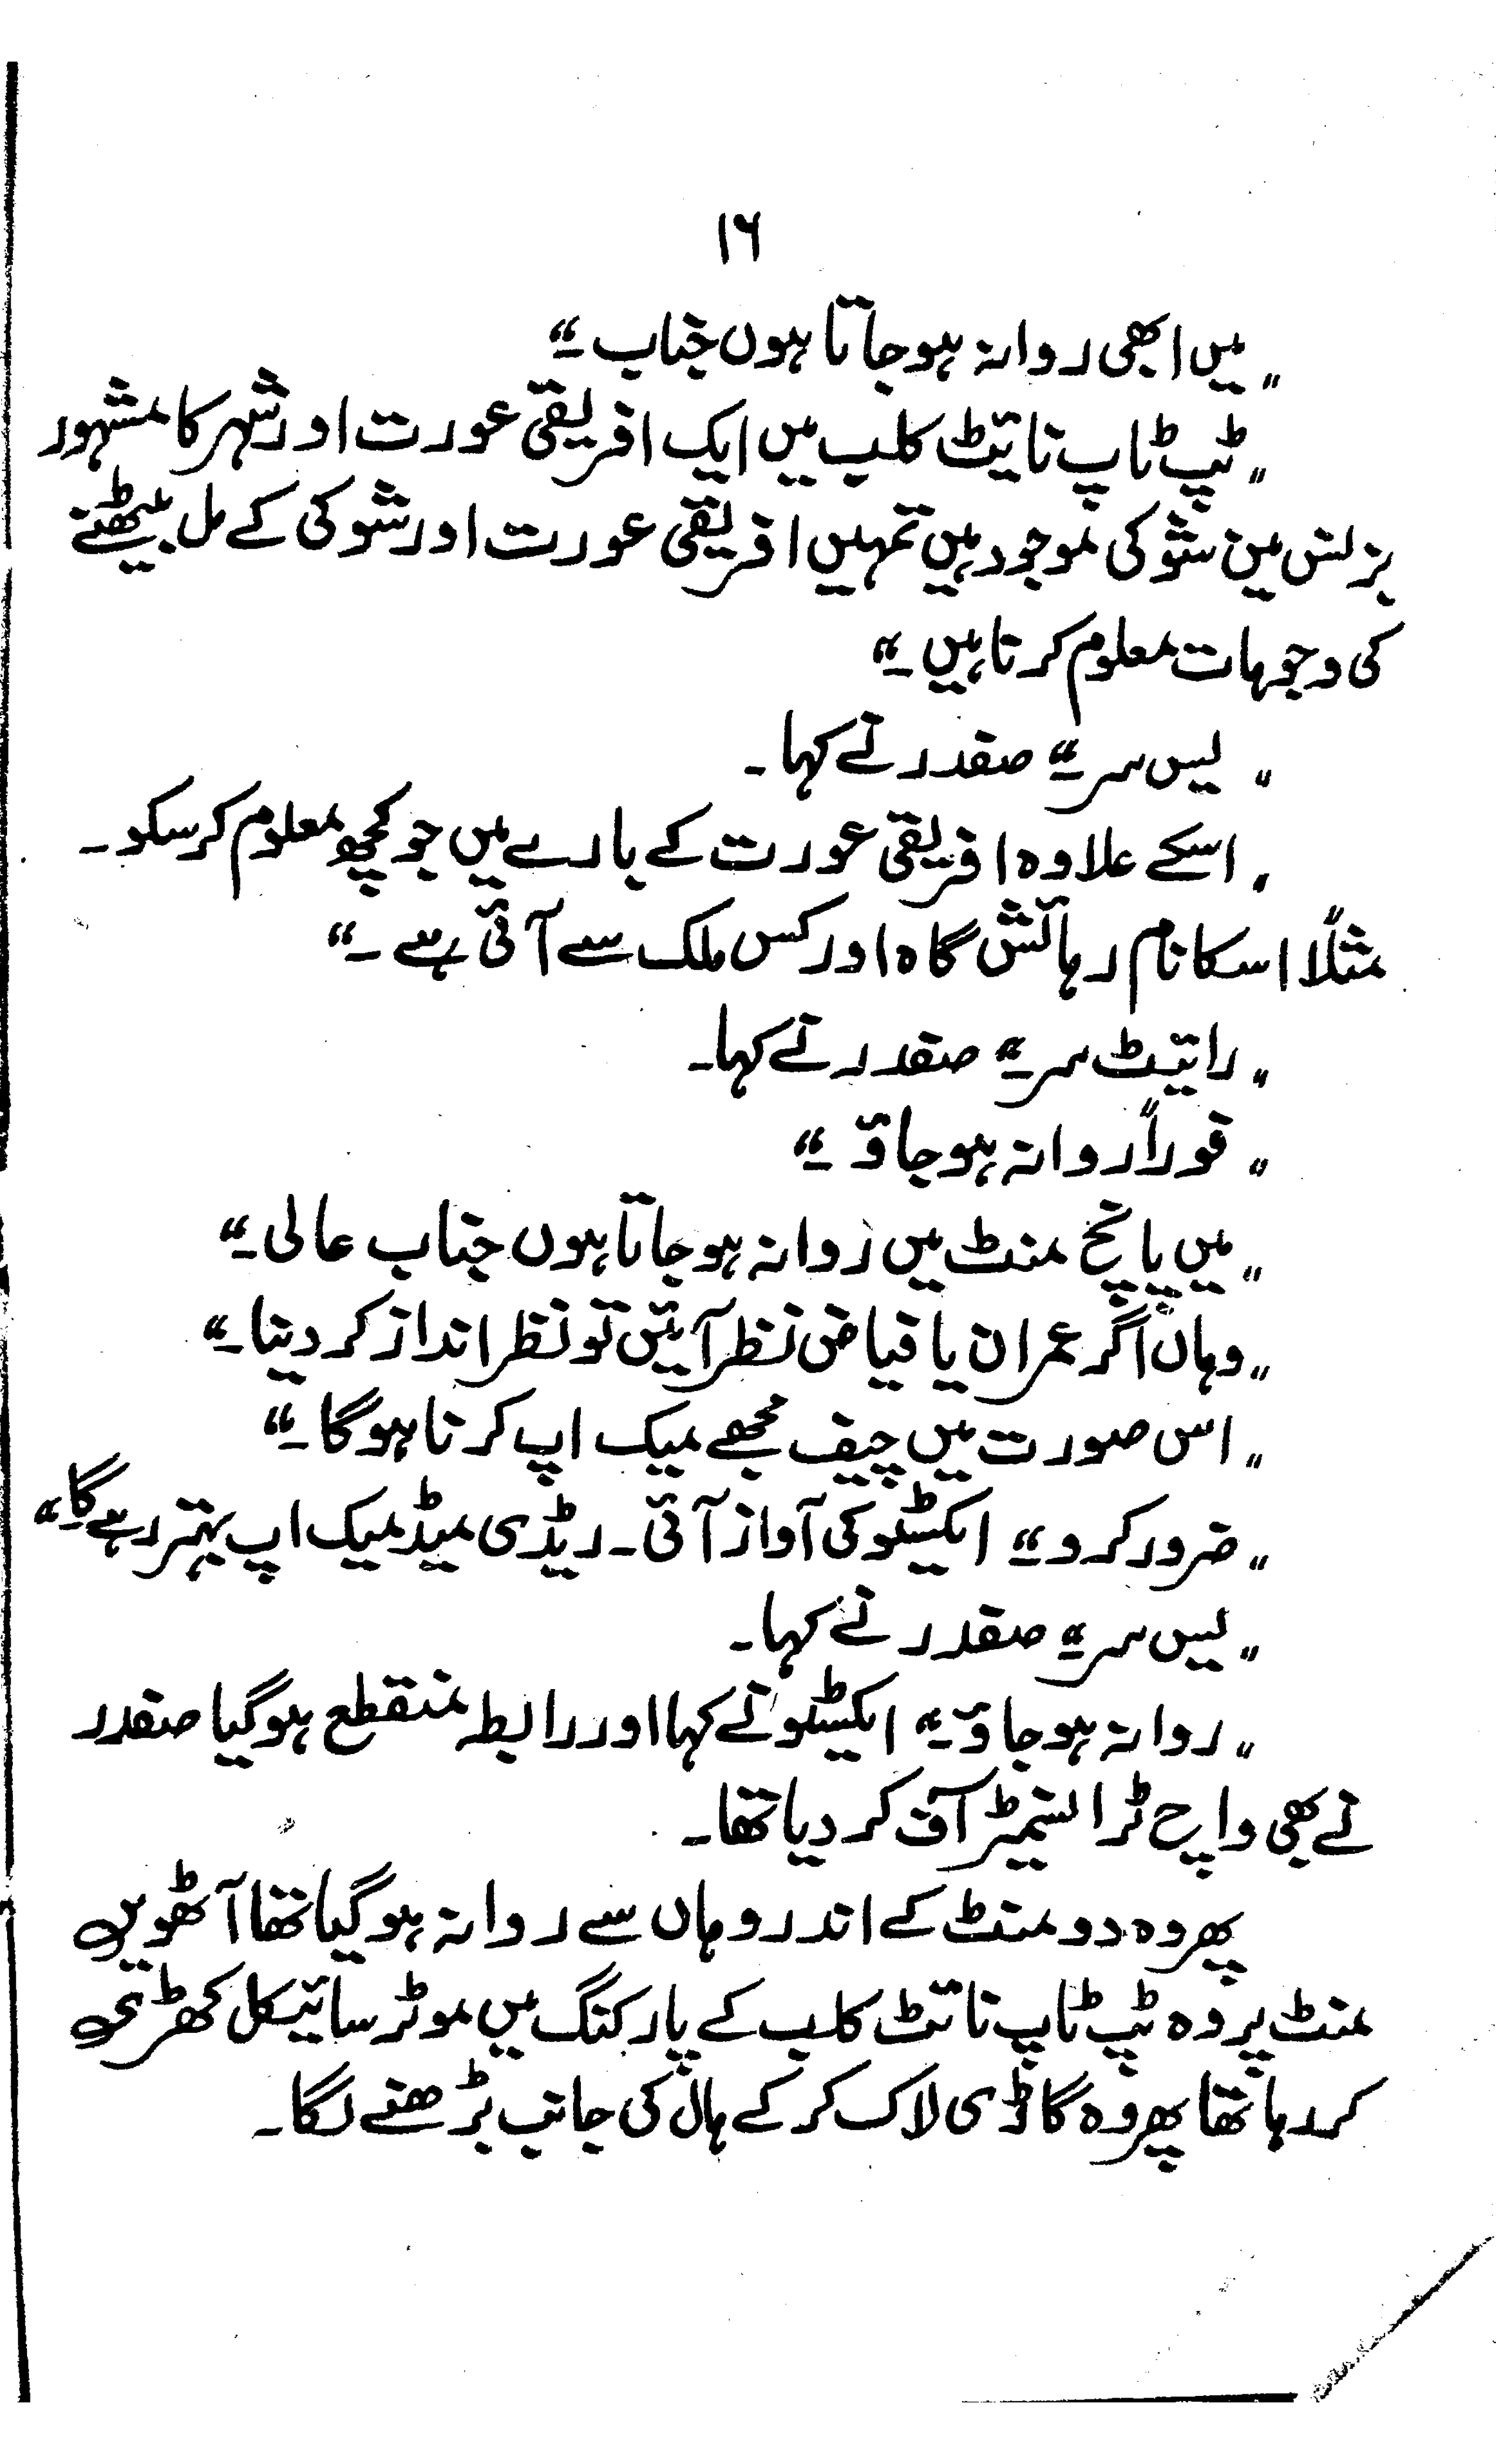 ۱۶
"میں ابھی روانہ ہوجاتا ہوں جناب۔"
"ٹپ ٹاپ نائیٹ کلب میں ایک افریقی عورت اور شہر کا مشہور
بزنس مین شوکی موجود ہیں تمہیں افریقی عورت اور شوکی کے مل بیٹھنے
کی وجوہات معلوم کرنا ہیں۔"
"یس سر۔" صفدر نے کہا۔
"اسکے علاوہ افریقی عورت کے بارے میں جو کچھ معلوم کرسکو۔
مثلاً اسکا نام رہائش گاہ اور کس ملک سے آئی ہے۔"
"رائیٹ سر۔" صفدر نے کہا۔
"فوراً روانہ ہوجاؤ۔"
"میں پانچ منٹ میں روانہ ہوجاتا ہوں جناب عالی۔"
"وہاں اگر عمران یا فیاض نظر آئیں تو نظر انداز کر دینا۔"
"اس صورت میں چیف مجھے میک اپ کرنا ہوگا۔"
"ضرور کرو۔" ایکسٹو کی آواز آئی۔ ریڈی میڈ میک اپ بہتر رہے گا۔"
"یس سر۔" صفدر نے کہا۔
"روانہ ہوجاؤ۔" ایکسٹو نے کہا اور رابطہ منقطع ہوگیا صفدر
نے بھی واچ ٹرانسمیٹر آف کر دیا تھا۔
پھر وہ دو منٹ کے اندر وہاں سے روانہ ہوگیا تھا آٹھویں
منٹ پر وہ ٹپ ٹاپ نائٹ کلب کے پارکنگ میں موٹر سائیکل کھڑی
کر رہا تھا پھر وہ گاڑی لاک کر کے ہال کی جانب بڑھنے لگا۔